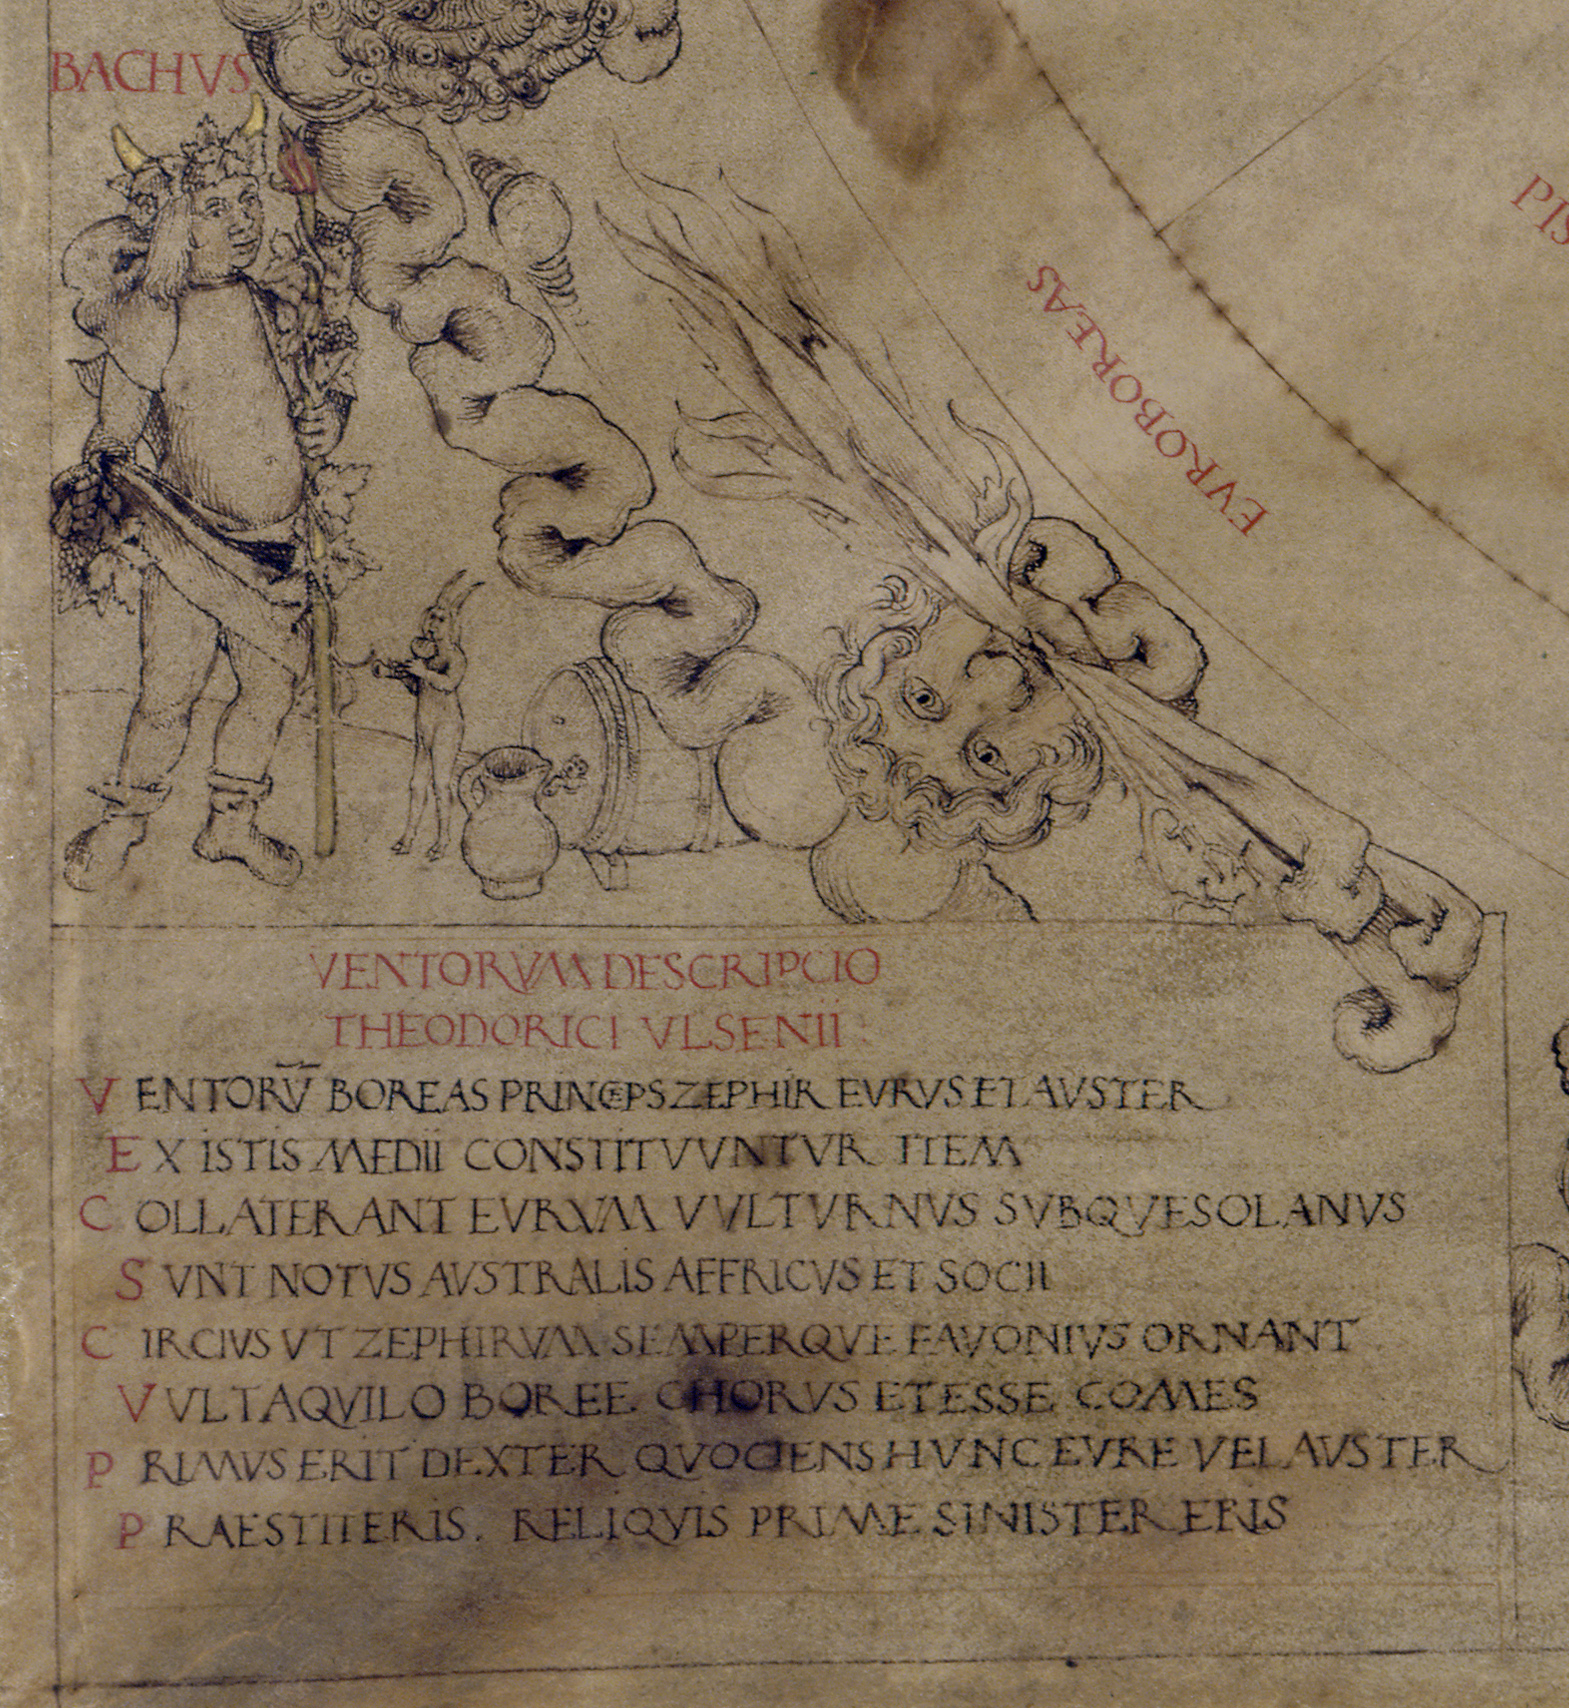 BACHVS
PIS
EVROBOREAS
VENTORVM DESCRIPCIO
THEODORICI VLSENII:
VENTORV̅ BOREAS PRINCEPS ZEPHIR EVRVS ET AVSTER
EX ISTIS MEDII CONSTITVVNTVR ITEM
COLLATERANT EVRVM VVLTVRNVS SVBQVESOLANVS
SVNT NOTVS AVSTRALIS AFFRICVS ET SOCII
CIRCIVS VT ZEPHIRVM SEMPERQVE FAVONIVS ORNANT
VVLT AQVILO BOREE CHORVS ET ESSE COMES
PRIMVS ERIT DEXTER QVOCIENS HVNC EVRE VEL AVSTER
PRAESTITERIS. RELIQVIS PRIME SINISTER ERIS